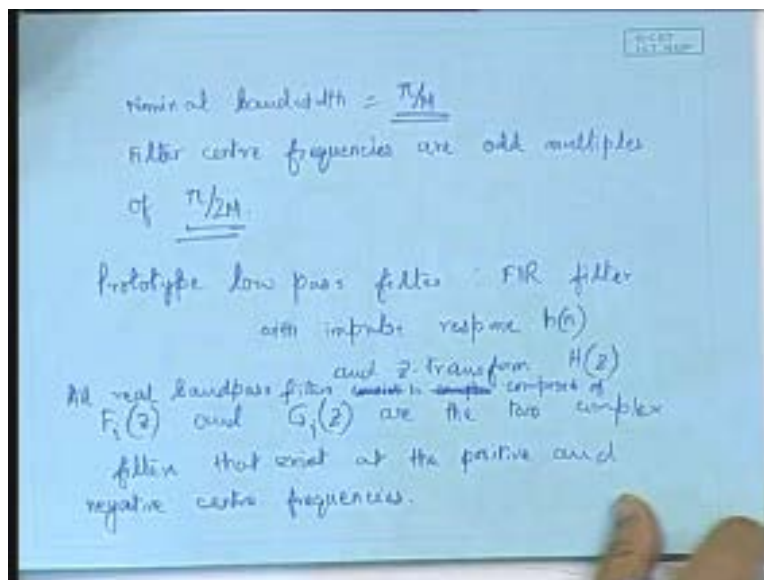 nominal bandwidth = π/M
Filter centre frequencies are odd multiples
of π/2M.
Prototype low pass filter : FIR filter
with impulse response h(n)
and z-transform H(z)
All real bandpass filter composed of
F₁(z) and G₁(z) are the two complex
filters that exist at the positive and
negative centre frequencies.